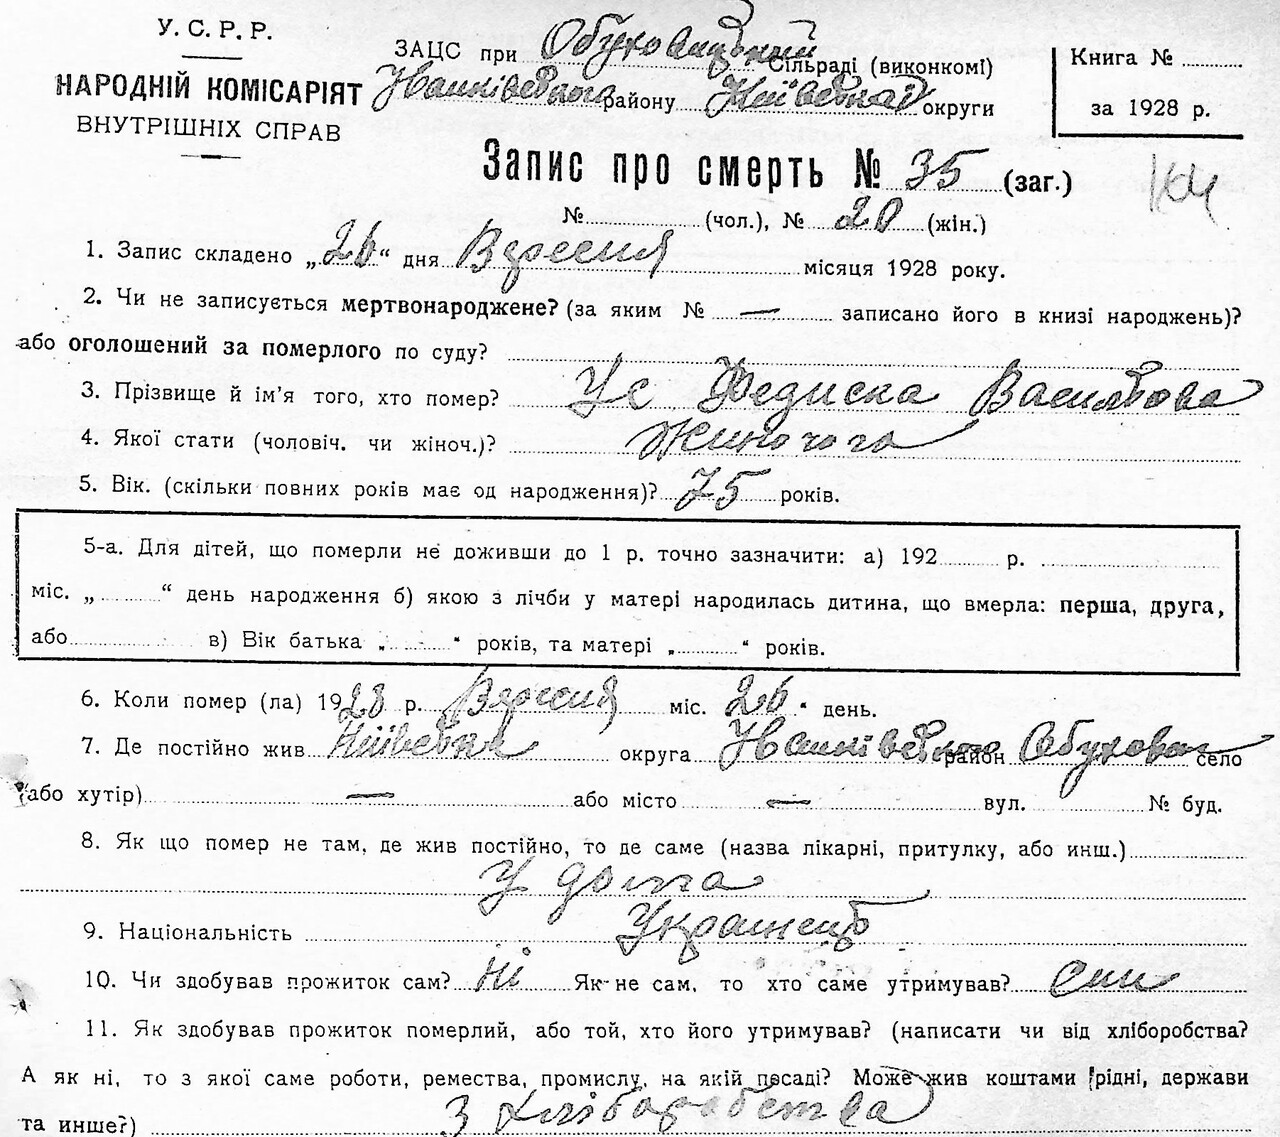 У. С. Р. Р.
НАРОДНІЙ КОМІСАРІЯТ
ВНУТРІШНІХ СПРАВ
ЗАЦС при Обуховицький Сільраді (виконкомі)
Іванківського району Київської округи
Книга №
за 1928 р.
Запис про смерть № 35 (заг.)
164
№ (чол.), № 20 (жін.)
1. Запис складено „26“ дня Вересня місяця 1928 року.
2. Чи не записується мертвонароджене? (за яким № — записано його в книзі народжень)?
або оголошений за померлого по суду?
3. Прізвище й ім'я того, хто помер? Ус Федиска Васильова
4. Якої стати (чоловіч. чи жіноч.)? Жиночого
5. Вік. (скільки повних років має од народження)? 75 років.
5-а. Для дітей, що померли не доживши до 1 р. точно зазначити: а) 192 р.
міс. „ “ день народження б) якою з лічби у матері народилась дитина, що вмерла: перша, друга,
або в) Вік батька „ “ років, та матері „ “ років.
6. Коли помер (ла) 1928 р. Вересня міс. 26 “ день.
7. Де постійно жив Київська округа Іванківського район Обухович село
(або хутір) — або місто — вул. № буд.
8. Як що помер не там, де жив постійно, то де саме (назва лікарні, притулку, або инш.)
У дома
9. Національність Украинець
10. Чи здобував прожиток сам? Ні Як не сам, то хто саме утримував? син
11. Як здобував прожиток померлий, або той, хто його утримував? (написати чи від хліборобства?
А як ні, то з якої саме роботи, ремества, промислу, на якій посаді? Може жив коштами рідні, держави
та инше?) З хліборобства